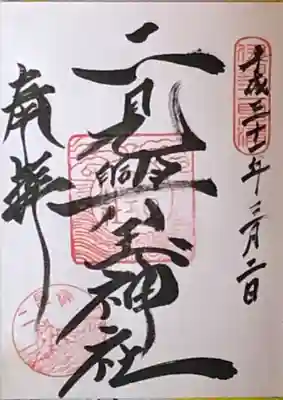 平成三十一年三月二日
二見興玉神社
奉拝